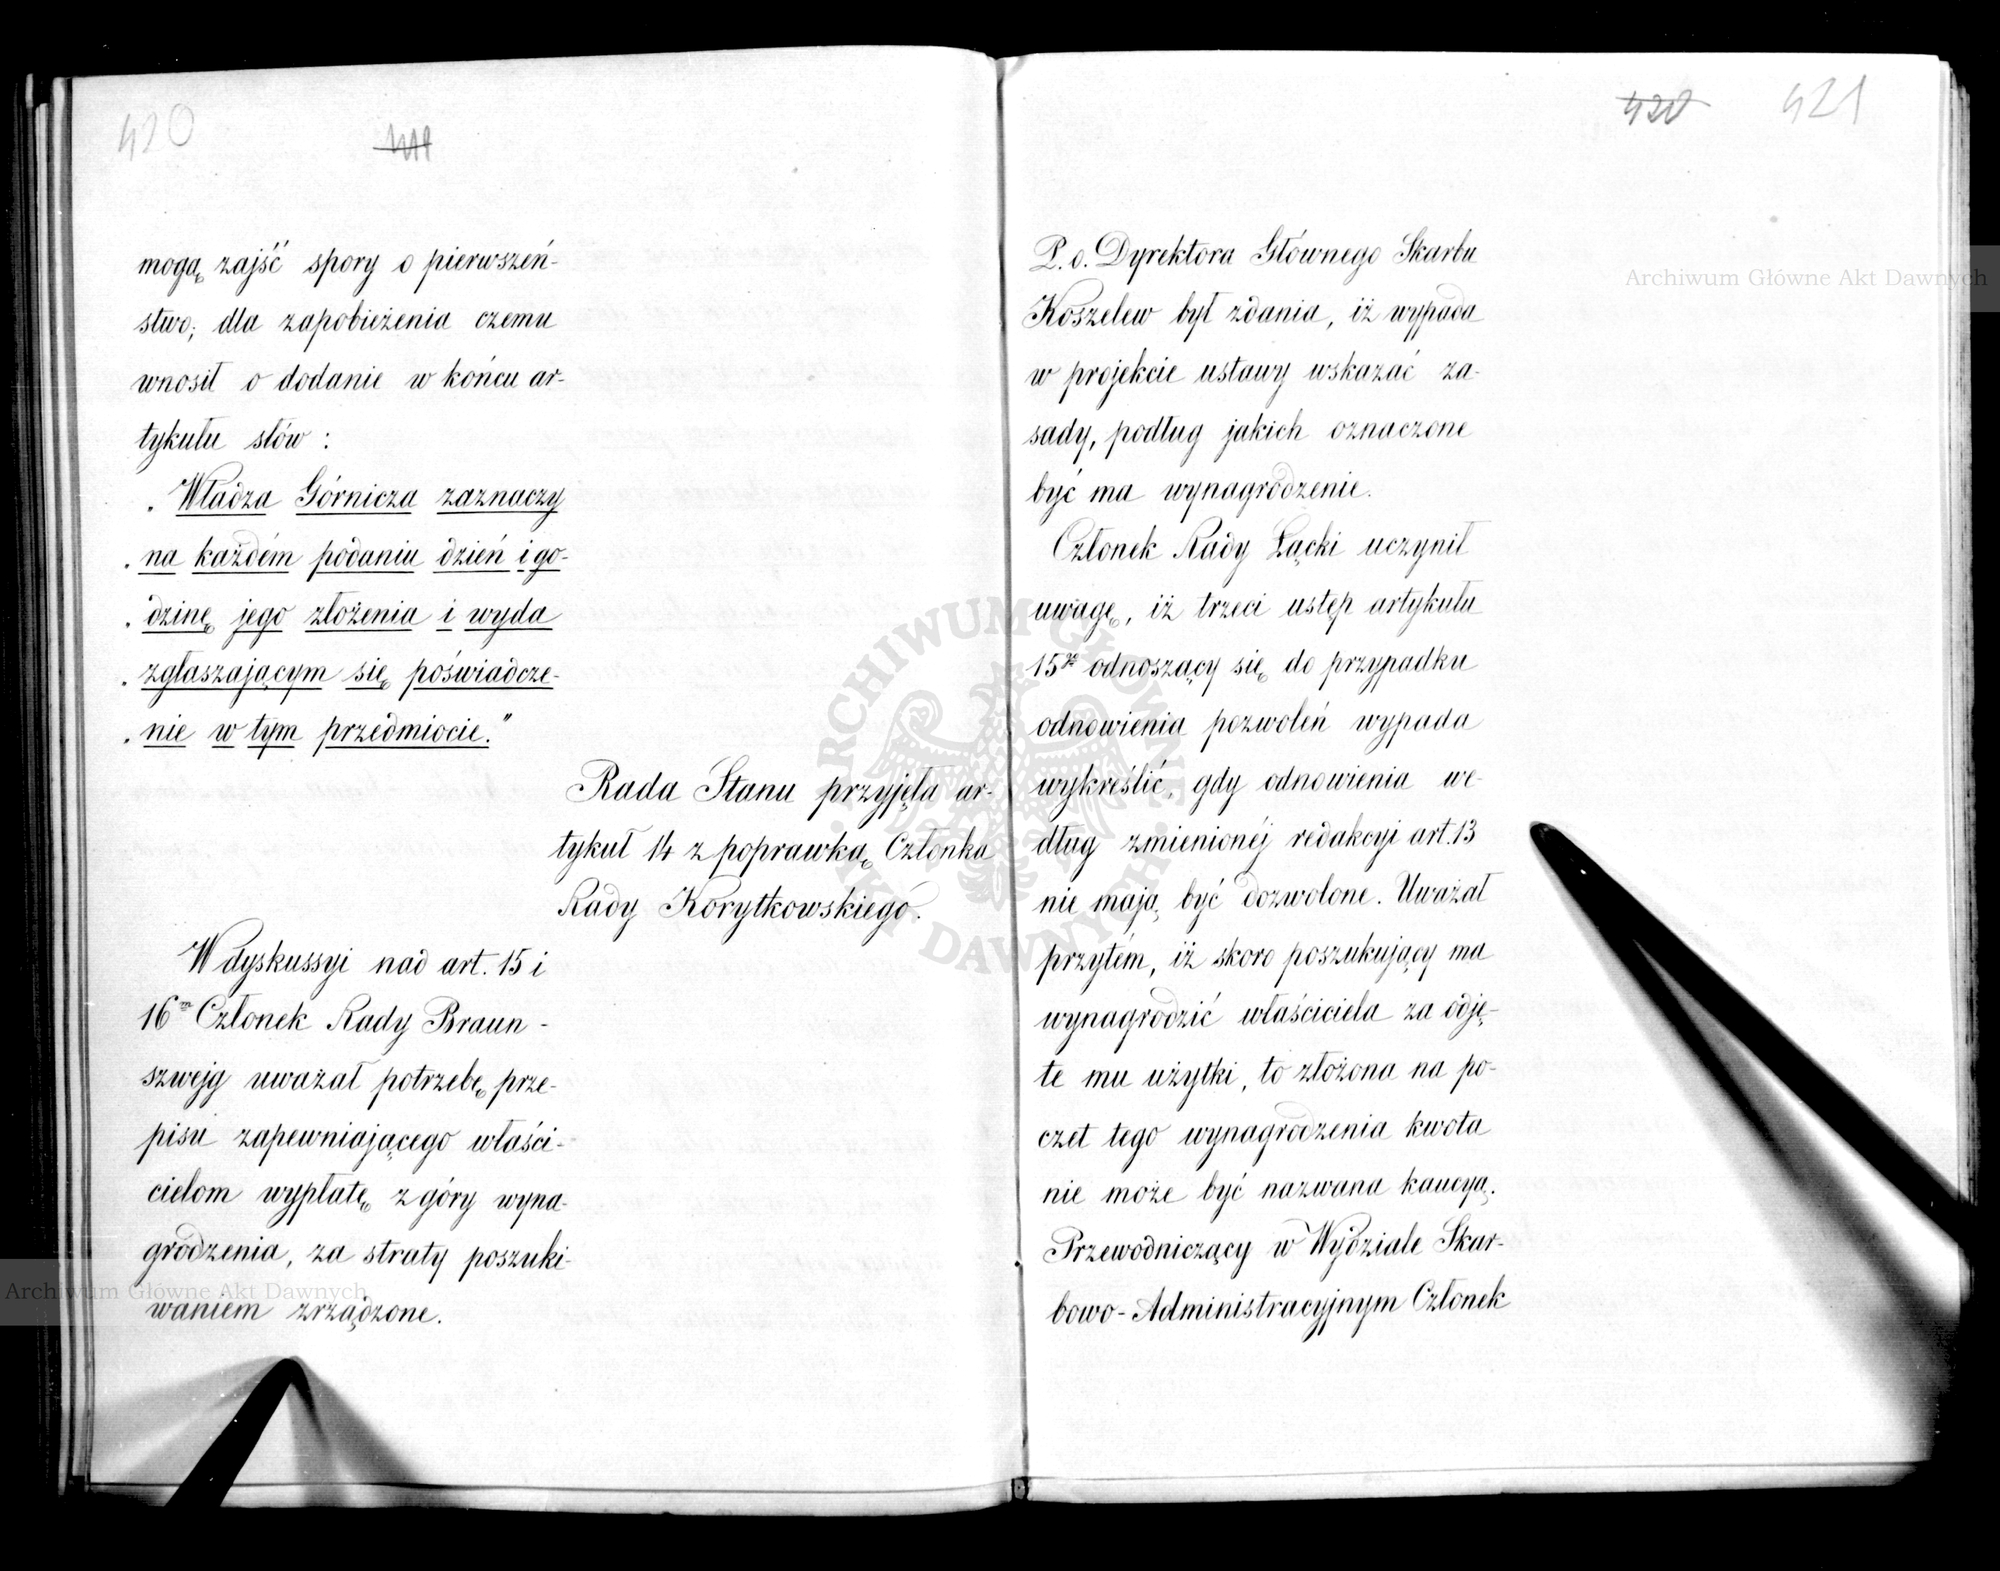 420
419
mogą zajść spory o pierwszeń-
stwo; dla zapobieżenia czemu
wnosił o dodanie w końcu ar-
tykułu słów :
„ Władza Górnicza zaznaczy
„ na każdém podaniu dzień i go-
„ dzinę jego złożenia i wyda
„ zgłaszającym się poświadcze-
„ nie w tym przedmiocie."
Rada Stanu przyjęła ar-
tykuł 14 z poprawką Członka
Rady Korytkowskiego.
W dyskussyi nad art. 15 i
16m Członek Rady Braun-
szwejg uważał potrzebę prze-
pisu zapewniającego właści-
cielom wypłatę z góry wyna-
grodzenia, za straty poszuki-
waniem zrządzone.
420 421
P. o. Dyrektora Głównego Skarbu
Koszelew był zdania, iż wypada
w projekcie ustawy wskazać za-
sady, podług jakich oznaczone
być ma wynagrodzenie.
Członek Rady Łącki uczynił
uwagę, iż trzeci ustęp artykułu
15go odnoszący się do przypadku
odnowienia pozwoleń wypada
wykreślić, gdy odnowienia we-
dług zmienionéj redakcyi art. 13
nie mają być dozwolone. Uważał
przytém, iż skoro poszukujący ma
wynagrodzić właściciela za odję-
te mu użytki, to złożona na po-
czet tego wynagrodzenia kwota
nie może być nazwana kaucyą.
Przewodniczący w Wydziale Skar-
bowo-Administracyjnym Członek
Archiwum Główne Akt Dawnych
Archiwum Główne Akt Dawnych
ARCHIWUM GŁÓWNE AKT DAWNYCH